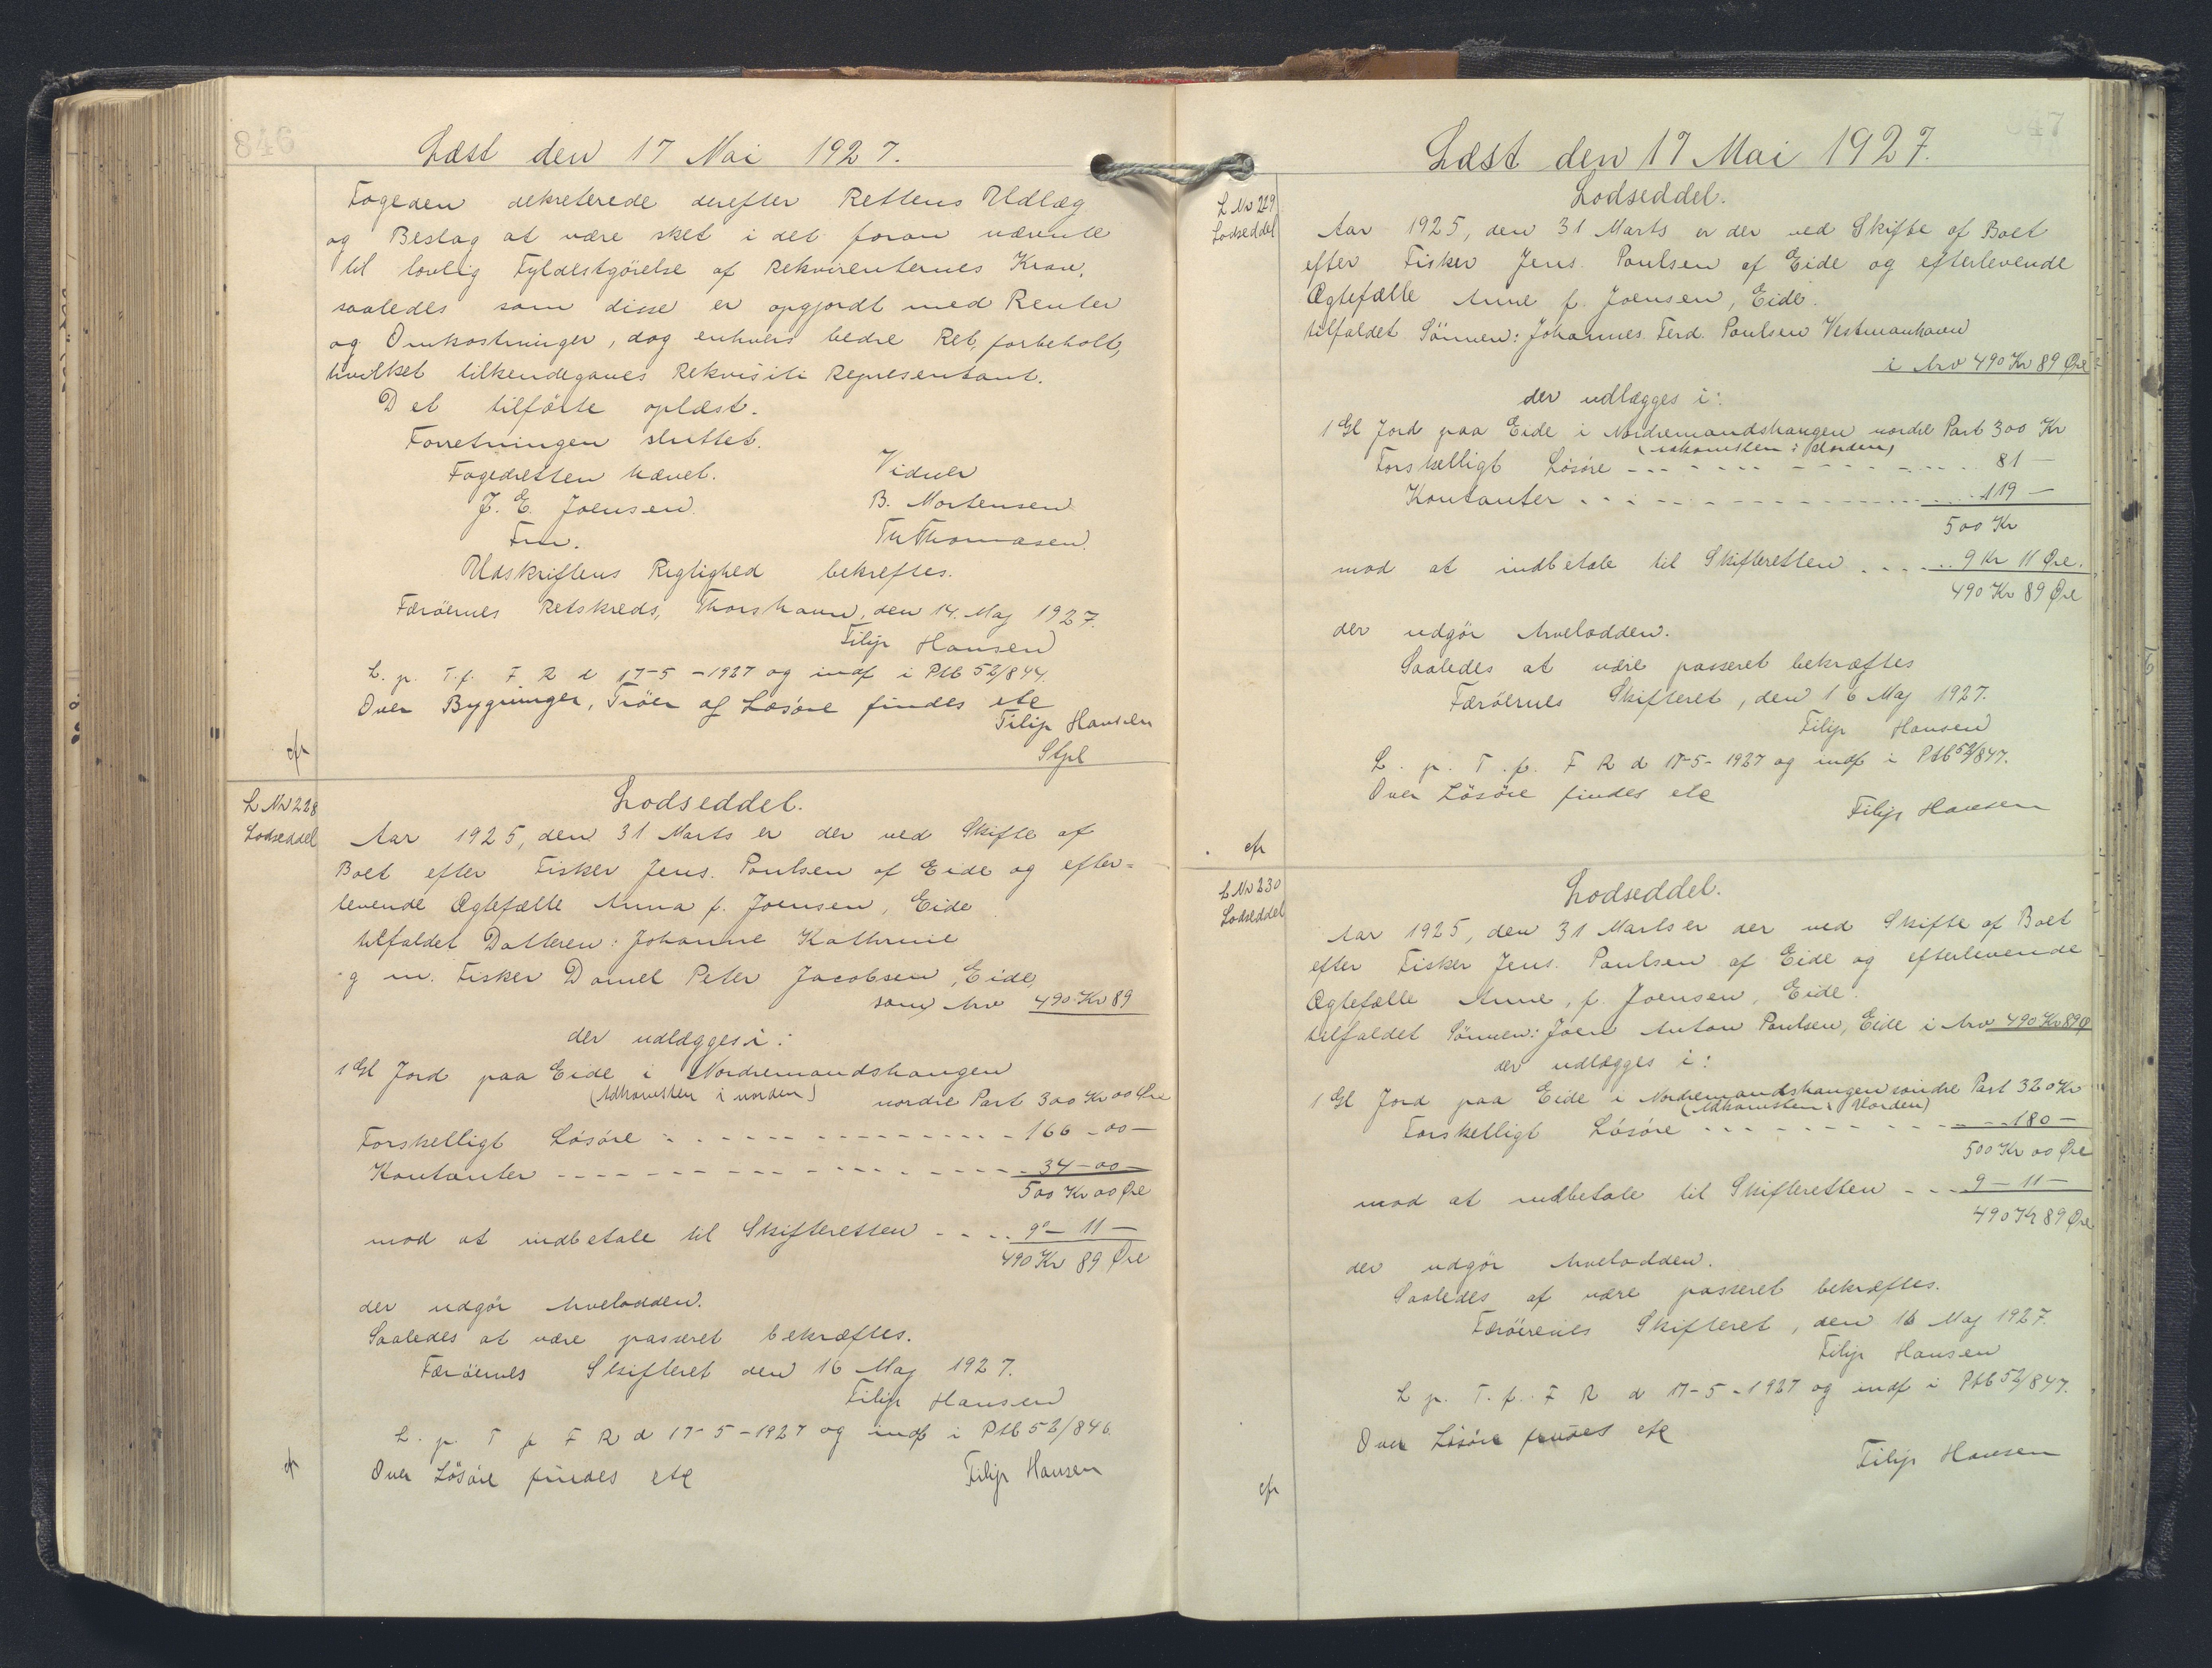 846
Læst den 17 Mai 1927.
Fogeden dekreterede derefter Rettens Udlæg
og Beslag at være sket i det foran nævnte
til lovlig Fyldestgörelse af Rekvirenternes Krav,
saaledes som disse er opgjordt med Renter
og Omkostninger, dog enhvers bedre Ret, forbeholt,
hvilket tilkendegaves Rekvisiti Representant.
Det tilförte oplæst.
Forretningen sluttet.
Fogedretten hævet.
Vidner
J. E. Joensen.
B. Mortensen
Fm.
Th Thomasen.
Udskriftens Rigtighed bekreftes.
Færöernes Retskreds, Thorshavn, den 14. Maj 1927.
Filip Hansen
L. p. T. f. F R d 17-5-1927 og indf i Ptb 52/844.
Over Bygninger, Tröer og Læsöre findes etc
Filip Hansen
Stpl
cfr
L Nr 228
Lodseddel
Lodseddel.
Aar 1925, den 31 Marts er der ved Skifte af
Boet efter Fisker Jens. Poulsen af Eide og efter=
levende Ægtefælle Anna f. Joensen, Eide
tilfaldet Datteren: Johanne Kathrine
g m. Fisker Daniel Peter Jacobsen, Eide,
som Arv 490 Kr 89
der udlægges i:
1 Gl Jord paa Eide i Nordremandshaugen
(Adkomsten i norden) nordre Part 300 Kr 00 Øre
Forskelligt Lösöre - - - - - - - - 166 - 00 -
Kontanter - - - - - - - - - - 34 - 00 -
500 Kr 00 Øre
mod at indbetale til Skifteretten - - - 9 - 11 -
490 Kr 89 Øre
der udgör Arvelodden.
Saaledes at være passeret bekræftes.
Færöernes Skifteret den 16 Maj 1927.
Filip Hansen
L. p. T f F R d 17-5-1927 og indf i Ptb 52/846.
Over Lösöre findes etc
Filip Hansen
cfr
847
Læst den 17 Mai 1927.
L Nr 229
Lodseddel
Lodseddel.
Aar 1925, den 31 Marts er der ved Skifte af Boet
efter Fisker Jens. Poulsen af Eide og efterlevende
Ægtefælle Anne f. Joensen, Eide.
tilfaldet Sönnen: Johannes Ferd. Poulsen Vestmanhavn
i Arv 490 Kr 89 Øre
der udlægges i:
1 Gl Jord paa Eide i Nordremandshaugen nordre Part 300 Kr
(Adkomsten i Norden)
Forskelligt Lösöre - - - - - - - 81 -
Kontanter - - - - - - - - 119 -
500 Kr
mod at indbetale til Skifteretten . . . . 9 Kr 11 Øre.
490 Kr 89 Øre
der udgör Arvelodden.
Saaledes at være passeret bekræftes
Færöernes Skifteret, den 16 Maj 1927.
Filip Hansen
L. p. T. f. F R d 17-5-1927 og indf i Ptb 52/847.
Over Lösöre findes etc
Filip Hansen
cfr
L Nr 230
Lodseddel
Lodseddel.
Aar 1925, den 31 Marts er der ved Skifte af Boet
efter Fisker Jens. Poulsen af Eide og efterlevende
Ægtefælle Anne, f. Joensen, Eide.
tilfaldet Sönnen: Joen Anton Poulsen, Eide i Arv 490 Kr 89 Ø
der udlægges i:
1 Gl Jord paa Eide i Nordremandshaugen söndre Part 320 Kr
(Adkomsten i Norden)
Forskelligt Lösöre - - - - - - - 180 -
500 Kr 00 Øre
mod at indbetale til Skifteretten - - - 9 - 11 -
490 Kr 89 Øre
der udgör Arvelodden.
Saaledes af være passeret bekræftes.
Færöerenes Skifteret, den 16 Maj 1927.
Filip Hansen
L p. T. f. F R d 17-5-1927 og indf i Ptb 52/847.
Over Lösöre findes etc
Filip Hansen
cfr